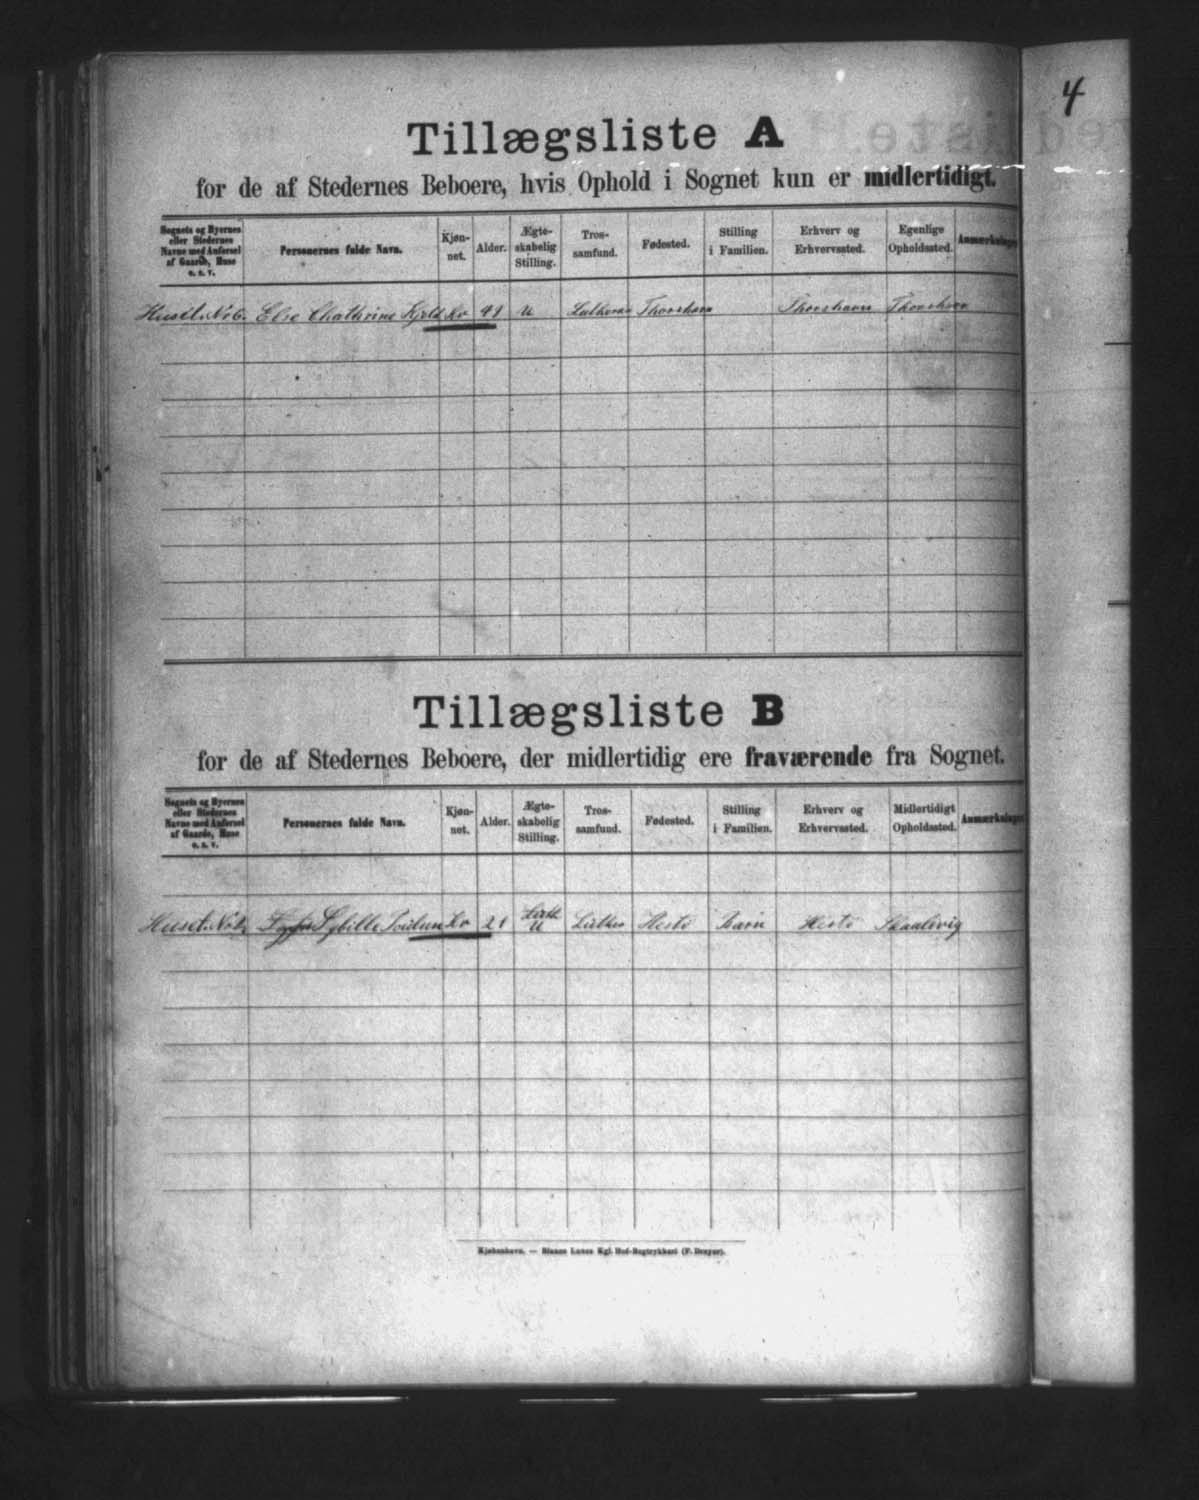 4
Tillægsliste A
for de af Stedernes Beboere, hvis Ophold i Sognet kun er midlertidigt.
Sognets og Byernes eller Stedernes Navne med Anførsel af Gaarde, Huse o. s. v. Personernes fulde Navn. Kjøn-net. Alder. Ægte-skabelig Stilling. Tros-samfund. Fødested. Stilling i Familien. Erhverv og Erhvervssted. Egenlige Opholdssted. Anmærkninger
Huset No 6. Else Chathrine Kjeld Kv 41 U Luthersk Thorshavn Thorshavn Thorshavn
Tillægsliste B
for de af Stedernes Beboere, der midlertidig ere fraværende fra Sognet.
Sognets og Byernes eller Stedernes Navne med Anførsel af Gaarde, Huse o. s. v. Personernes fulde Navn. Kjøn-net. Alder. Ægte-skabelig Stilling. Tros-samfund. Fødested. Stilling i Familien. Erhverv og Erhvervssted. Midlertidigt Opholdssted. Anmærkninger
Huset No Sybille Kv 21 U Luther Hestø Barn Hestø Skaalevig
Kjøbenhavn. — Bianco Lunos Kgl. Hof-Bogtrykkeri (F. Dreyer).